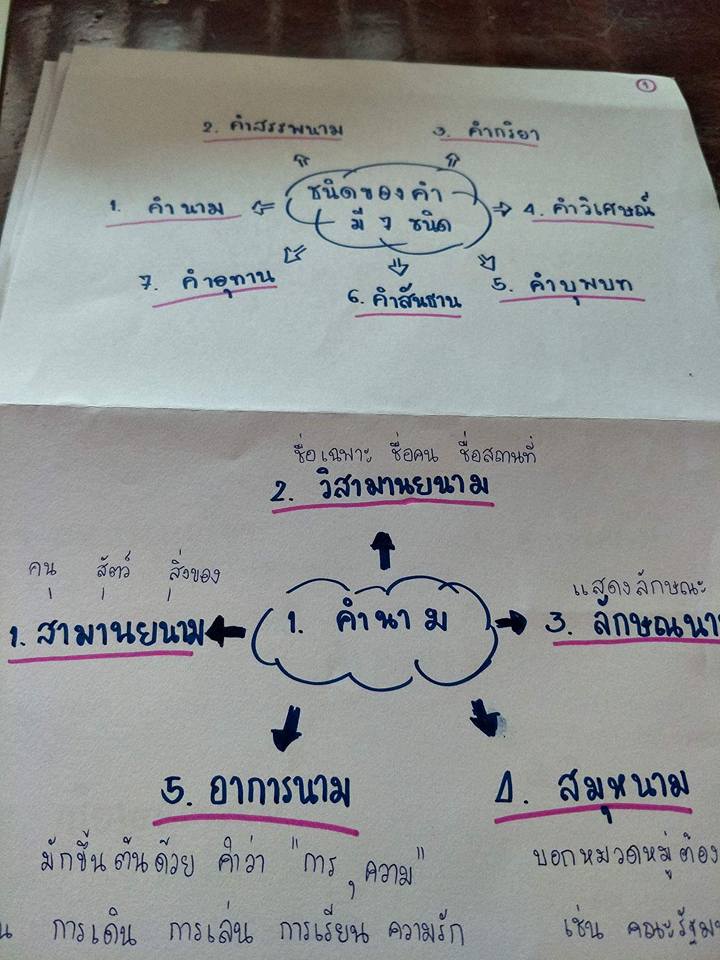 1
2. คำสรรพนาม
3. คำกริยา
ชนิดของคำ
มี 7 ชนิด
1. คำนาม
4. คำวิเศษณ์
7. คำอุทาน
6. คำสันธาน
5. คำบุพบท
ชื่อเฉพาะ ชื่อคน ชื่อสถานที่
2. วิสามานยนาม
คน, สัตว์, สิ่งของ
1. สามานยนาม
1. คำนาม
แสดงลักษณะ
3. ลักษณนาม
5. อาการนาม
4. สมุหนาม
มักขึ้นต้นด้วย คำว่า "การ, ความ"
บอกหมวดหมู่ต้อง
การเดิน การเล่น การเรียน ความรัก
เช่น คณะรัฐม